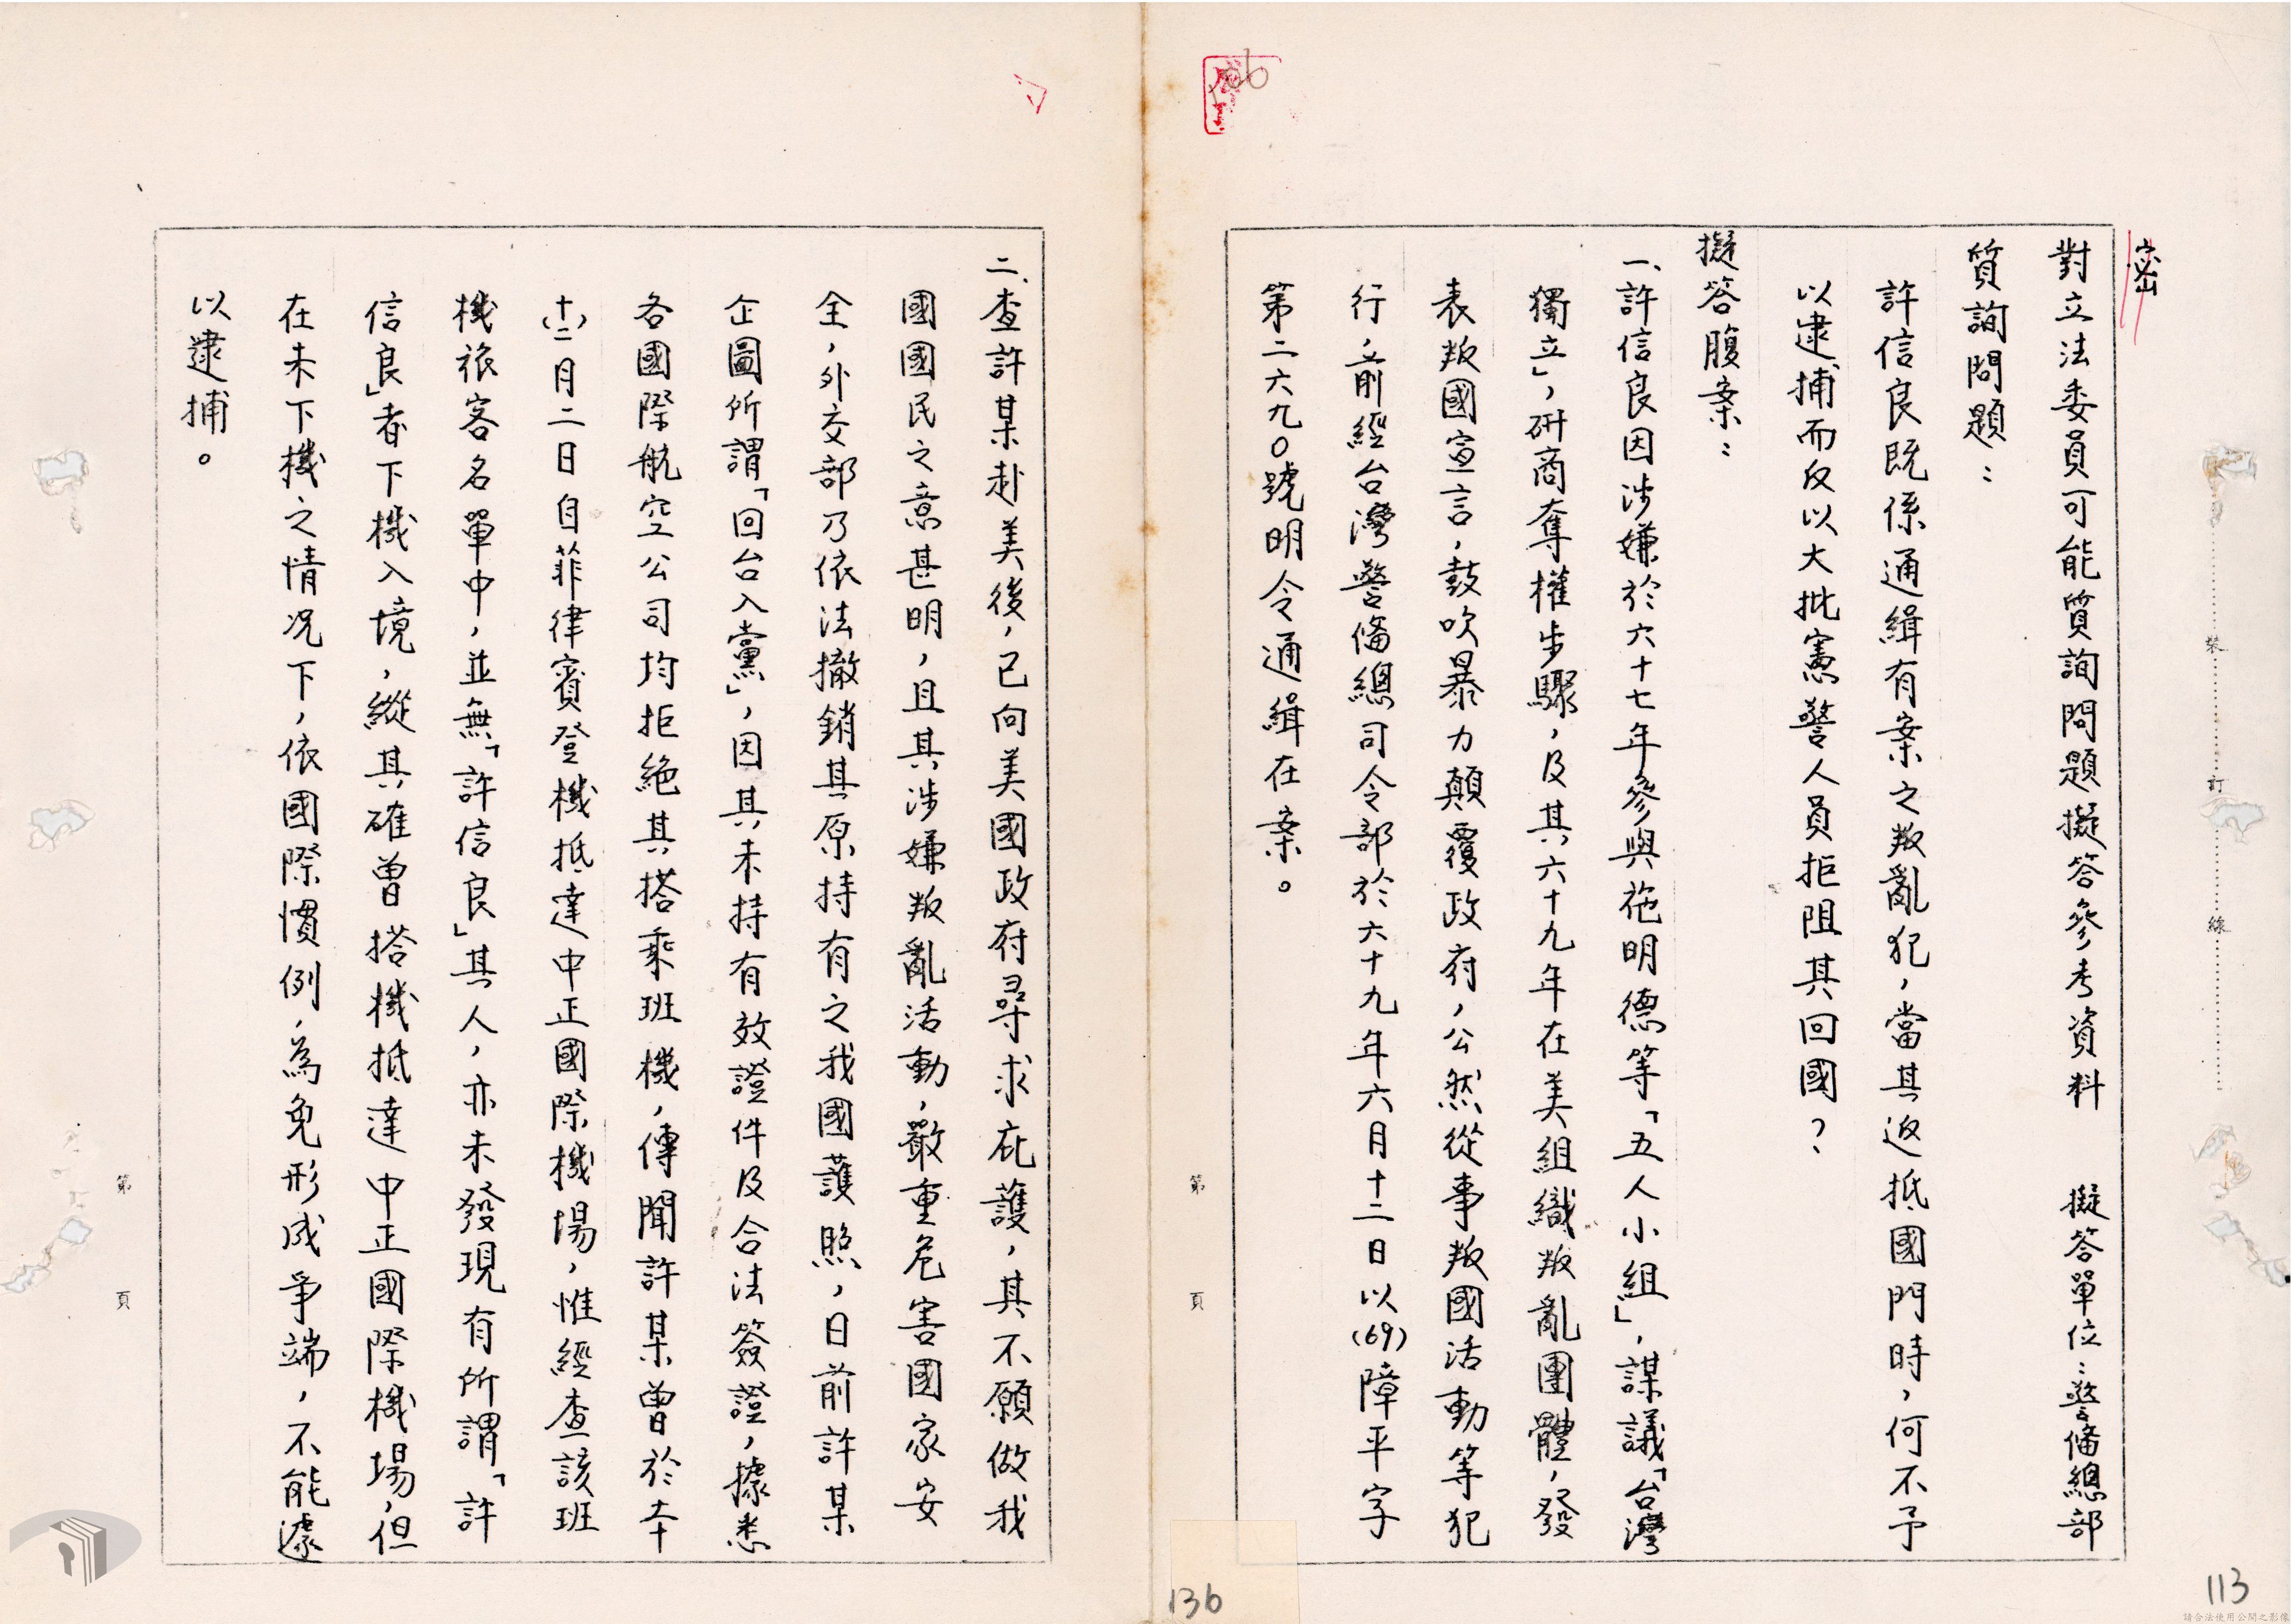 密
對立法委員可能質詢問題擬答參考資料　擬答單位：警備總部
質詢問題：
許信良既係通緝有案之叛亂犯，當其返抵國門時，何不予
以逮捕而反以大批憲警人員拒阻其回國？
擬答腹案：
一、許信良因涉嫌於六十七年參與施明德等「五人小組」，謀議「台灣
獨立」，研商奪權步驟，及其六十九年在美組織叛亂團體，發
表叛國宣言，鼓吹暴力顛覆政府，公然從事叛國活動等犯
行，前經台灣警備總司令部於六十九年六月十二日以(69)障平字
第二六九〇號明令通緝在案。
第　頁
裝　訂　線
113
136
二、查許某赴美後，已向美國政府尋求庇護，其不願做我
國國民之意甚明，且其涉嫌叛亂活動，嚴重危害國家安
全，外交部乃依法撤銷其原持有之我國護照，日前許某
企圖所謂「回台入黨」，因其未持有效證件及合法簽證，據悉
各國際航空公司均拒絕其搭乘班機，傳聞許某曾於本
(十二)月二日自菲律賓登機抵達中正國際機場，惟經查該班
機旅客名單中，並無「許信良」其人，亦未發現有所謂「許
信良」者下機入境，縱其確曾搭機抵達中正國際機場，但
在未下機之情況下，依國際慣例，為免形成爭端，不能遽
以逮捕。
第　頁
請合法使用公開之影像